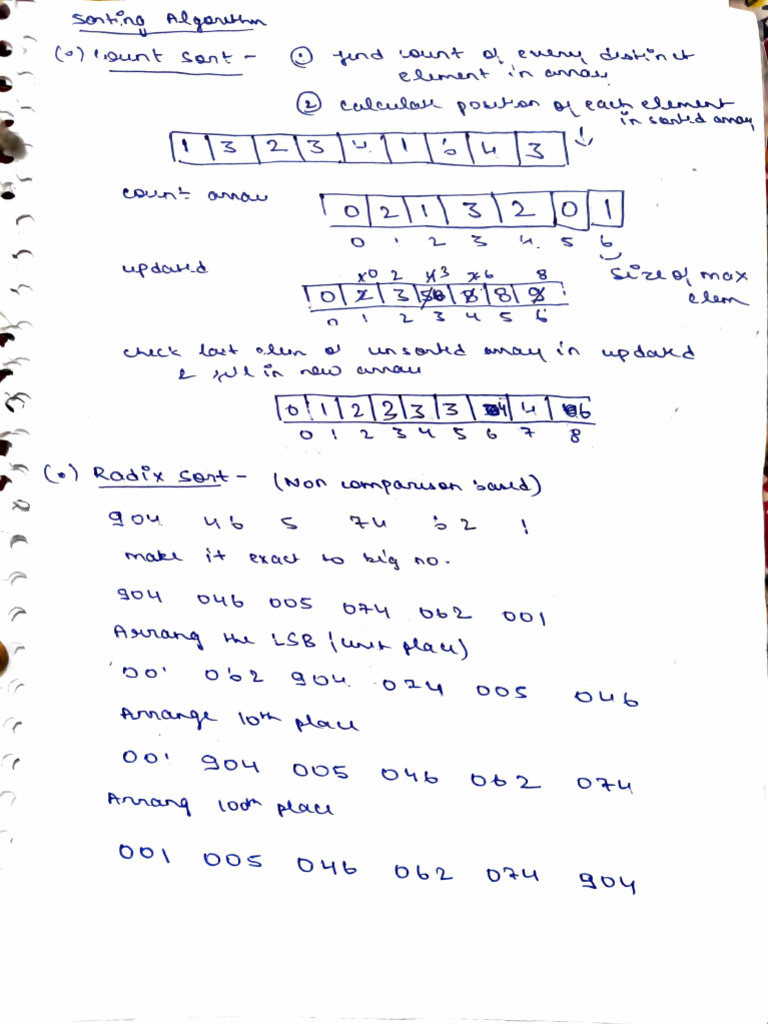 Sorting Algorithm
(0) Count Sort - ① find count of every distinct
element in array
② calculate position of each element
in sorted array
1 3 2 3 4 1 6 4 3
count array
0 2 1 3 2 0 1
0 1 2 3 4 5 6
size of max
elem
updated
0 2 3 6 8 8 9
0 1 2 3 4 5 6
check last elem of unsorted array in updated
& fill in new array
0 1 2 3 3 3 4 4 6
0 1 2 3 4 5 6 7 8
(0) Radix Sort - (Non comparison based)
904 46 5 74 62 1
make it exact to big no.
904 046 005 074 062 001
Arrang the LSB (unit place)
001 062 904 074 005 046
Arrange 10th place
001 904 005 046 062 074
Arrang 100th place
001 005 046 062 074 904